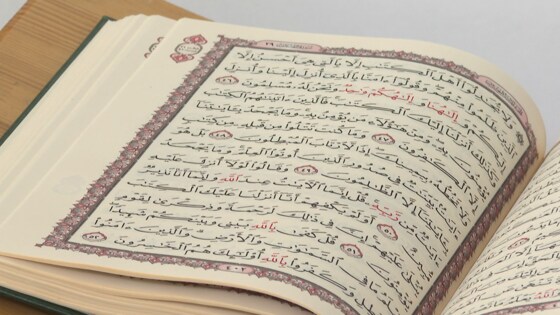 وَلَا تُجَٰدِلُوٓا۟ أَهْلَ ٱلْكِتَٰبِ إِلَّا بِٱلَّتِى هِىَ أَحْسَنُ إِلَّا
ٱلَّذِينَ ظَلَمُوا۟ مِنْهُمْ وَقُولُوٓا۟ ءَامَنَّا بِٱلَّذِىٓ أُنزِلَ إِلَيْنَا وَأُنزِلَ
إِلَيْكُمْ وَإِلَٰهُنَا وَإِلَٰهُكُمْ وَٰحِدٌ وَنَحْنُ لَهُۥ مُسْلِمُونَ ٤٦
وَكَذَٰلِكَ أَنزَلْنَآ إِلَيْكَ ٱلْكِتَٰبَ فَٱلَّذِينَ ءَاتَيْنَٰهُمُ ٱلْكِتَٰبَ
يُؤْمِنُونَ بِهِۦ وَمِنْ هَٰٓؤُلَآءِ مَن يُؤْمِنُ بِهِۦ وَمَا يَجْحَدُ بِـَٔايَٰتِنَآ
إِلَّا ٱلْكَٰفِرُونَ ٤٧ وَمَا كُنتَ تَتْلُوا۟ مِن قَبْلِهِۦ مِن كِتَٰبٍ
وَلَا تَخُطُّهُۥ بِيَمِينِكَ إِذًا لَّٱرْتَابَ ٱلْمُبْطِلُونَ ٤٨ بَلْ هُوَ
ءَايَٰتٌۢ بَيِّنَٰتٌ فِى صُدُورِ ٱلَّذِينَ أُوتُوا۟ ٱلْعِلْمَ وَمَا يَجْحَدُ
بِـَٔايَٰتِنَآ إِلَّا ٱلظَّٰلِمُونَ ٤٩ وَقَالُوا۟ لَوْلَآ أُنزِلَ عَلَيْهِ
ءَايَٰتٌ مِّن رَّبِّهِۦ قُلْ إِنَّمَا ٱلْـَٔايَٰتُ عِندَ ٱللَّهِ وَإِنَّمَآ أَنَا۠ نَذِيرٌ
مُّبِينٌ ٥٠ أَوَلَمْ يَكْفِهِمْ أَنَّآ أَنزَلْنَا عَلَيْكَ ٱلْكِتَٰبَ
يُتْلَىٰ عَلَيْهِمْ إِنَّ فِى ذَٰلِكَ لَرَحْمَةً وَذِكْرَىٰ لِقَوْمٍ
يُؤْمِنُونَ ٥١ قُلْ كَفَىٰ بِٱللَّهِ بَيْنِى وَبَيْنَكُمْ شَهِيدًا
يَعْلَمُ مَا فِى ٱلسَّمَٰوَٰتِ وَٱلْأَرْضِ وَٱلَّذِينَ ءَامَنُوا۟
بِٱلْبَٰطِلِ وَكَفَرُوا۟ بِٱللَّهِ أُو۟لَٰٓئِكَ هُمُ ٱلْخَٰسِرُونَ ٥٢